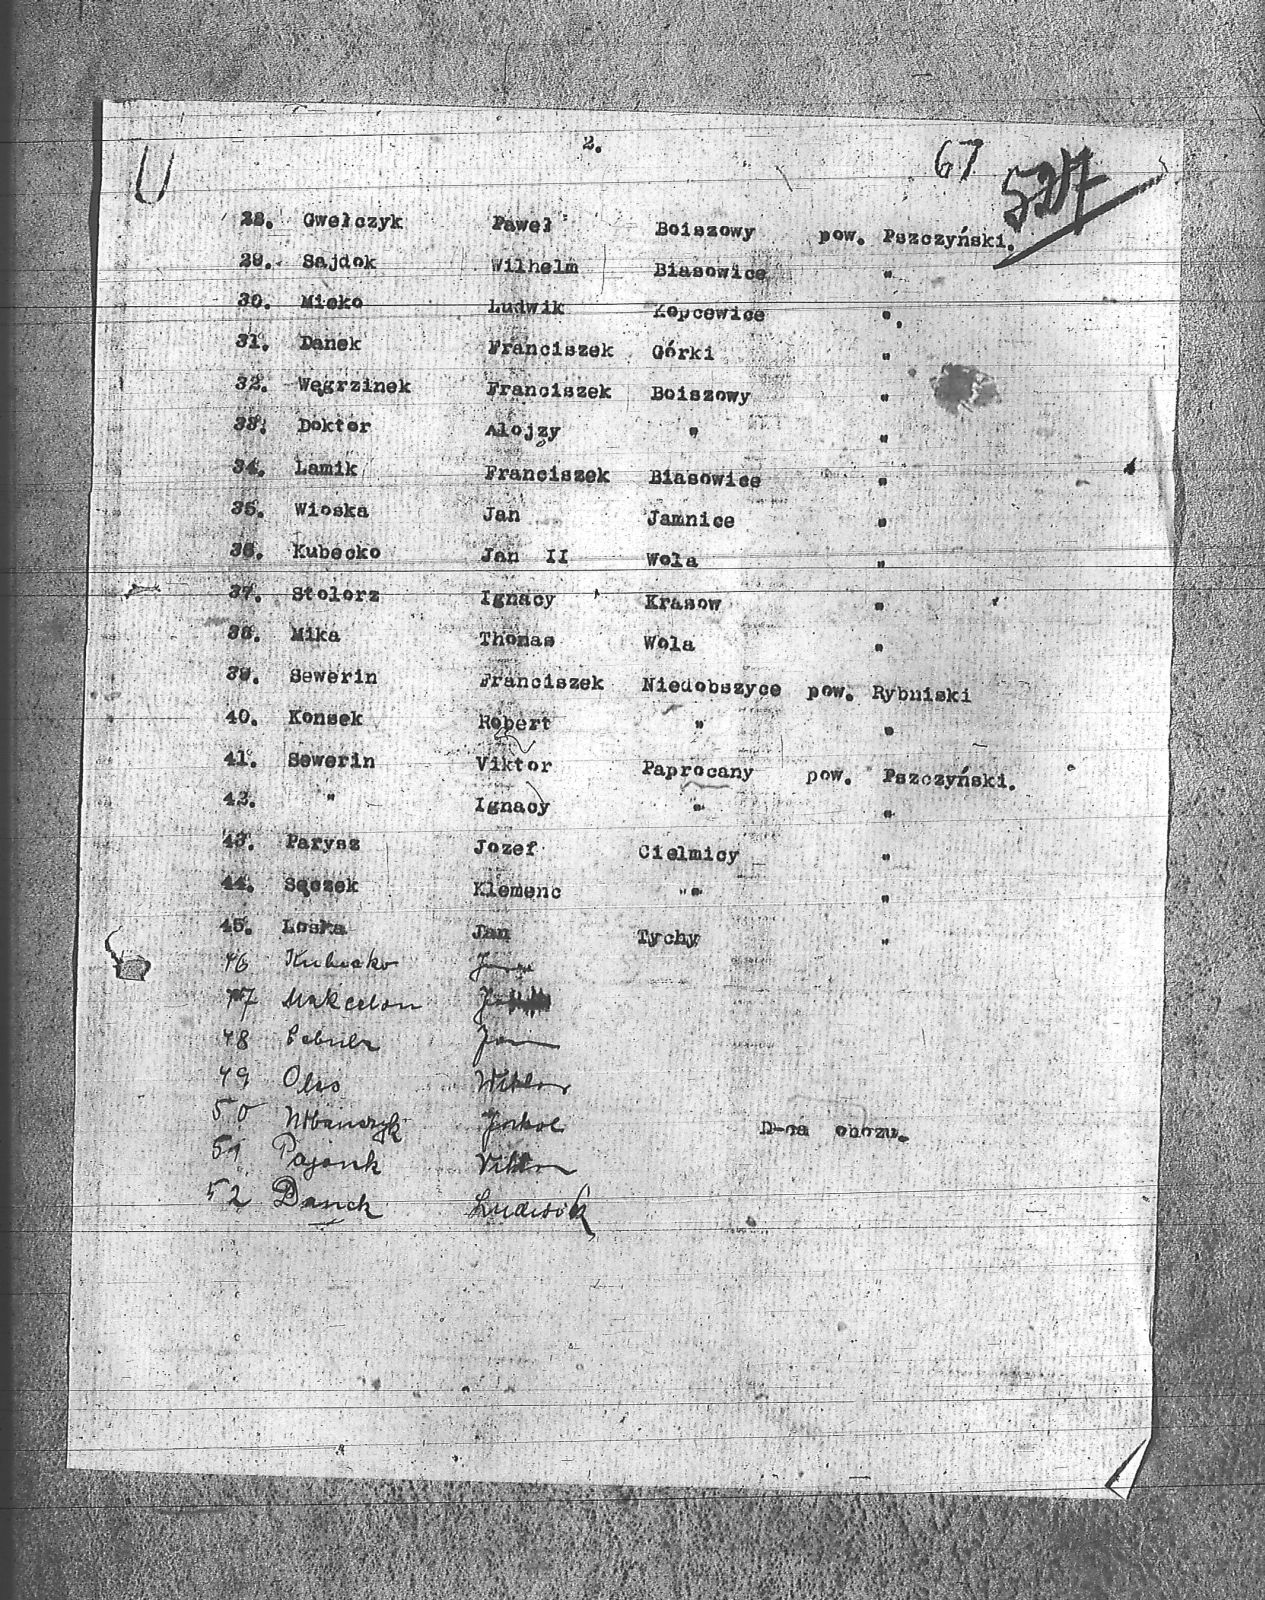 2.
67
527
28. Gwełczyk Paweł Boiszowy pow. Pszczyński.
29. Sajdok Wilhelm Biasowice "
30. Mieko Ludwik Kopcewice "
31. Danek Franciszek Górki "
32. Węgrzinek Franciszek Boiszowy "
33. Doktor Alojzy " "
34. Lamik Franciszek Biasowice "
35. Wioska Jan Jamnice "
36. Kubecko Jan II Wola "
37. Stolorz Ignacy Krasow "
38. Mika Thomas Wola "
39. Sewerin Franciszek Niedobszyce pow. Rybniski
40. Konsek Robert " "
41. Sewerin Viktor Paprocany pow. Pszczyński.
42. " Ignacy " "
43. Parysz Jozef Cielmicy "
44. Sączek Klemenc " "
45. Loska Jan Tychy "
46
47
48 Jan
49 Wiktor
50
51 Pajonk Viktor
52 Danek Ludwik
D-ca obozu.